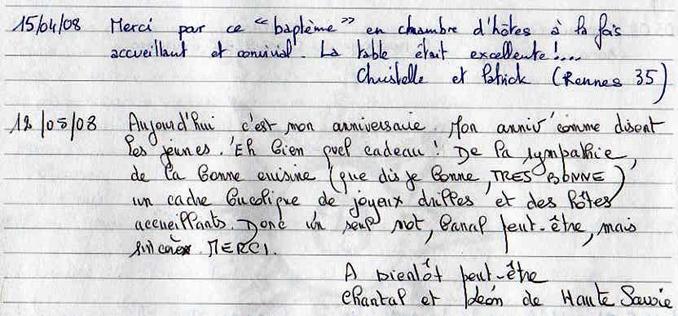 15/04/08 Merci par ce "baptème" en chambre d'hôtes à la fois
accueillant et convivial. La table était excellente !...
Christelle et Patrick (Rennes 35)
12/05/08 Aujourd'hui c'est mon anniversaire. Mon anniv' comme disent
les jeunes. Eh bien quel cadeau ! De la sympathie,
de la bonne cuisine (que dis je bonne, TRES BONNE)
un cadre bucolique de joyeux drilles et des hôtes
accueillants. Donc un seul mot, banal peut-être, mais
sincère MERCI.
A bientôt peut-être
Chantal et Léon de Haute Savoie